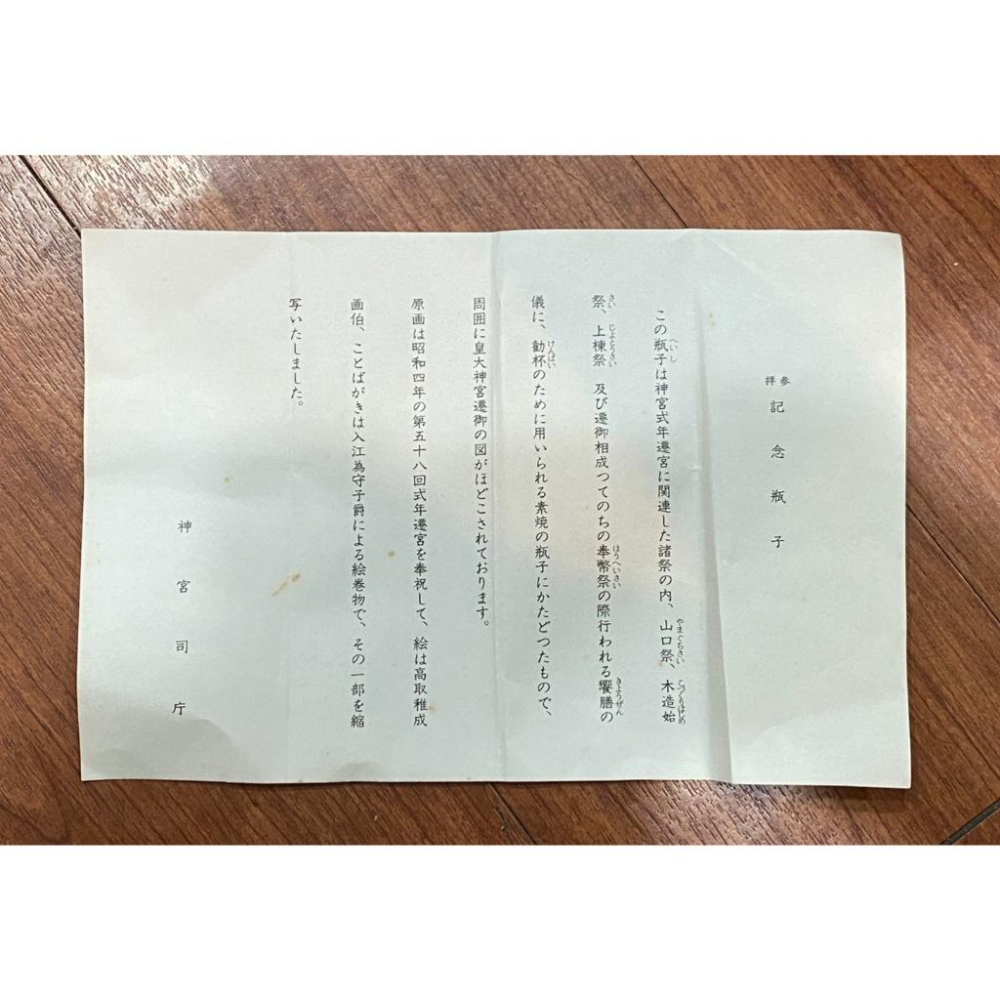 参拝記念瓶子
この瓶子は神宮式年遷宮に関連した諸祭の内、山口祭、木造始
祭、上棟祭 及び遷御相成つてのちの奉幣祭の際行われる饗膳の
儀に、勧杯のために用いられる素焼の瓶子にかたどつたもので、
周囲に皇大神宮遷御の図がほどこされております。
原画は昭和四年の第五十八回式年遷宮を奉祝して、絵は高取稚成
画伯、ことばがきは入江為守子爵による絵巻物で、その一部を縮
写いたしました。
神宮司庁